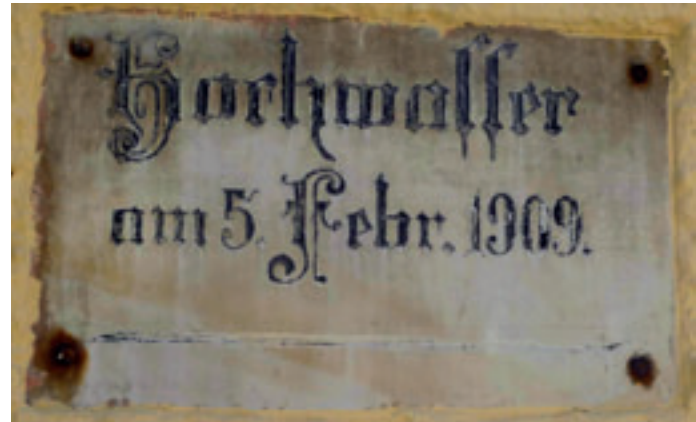 Hochwasser
am 5. Febr. 1909.